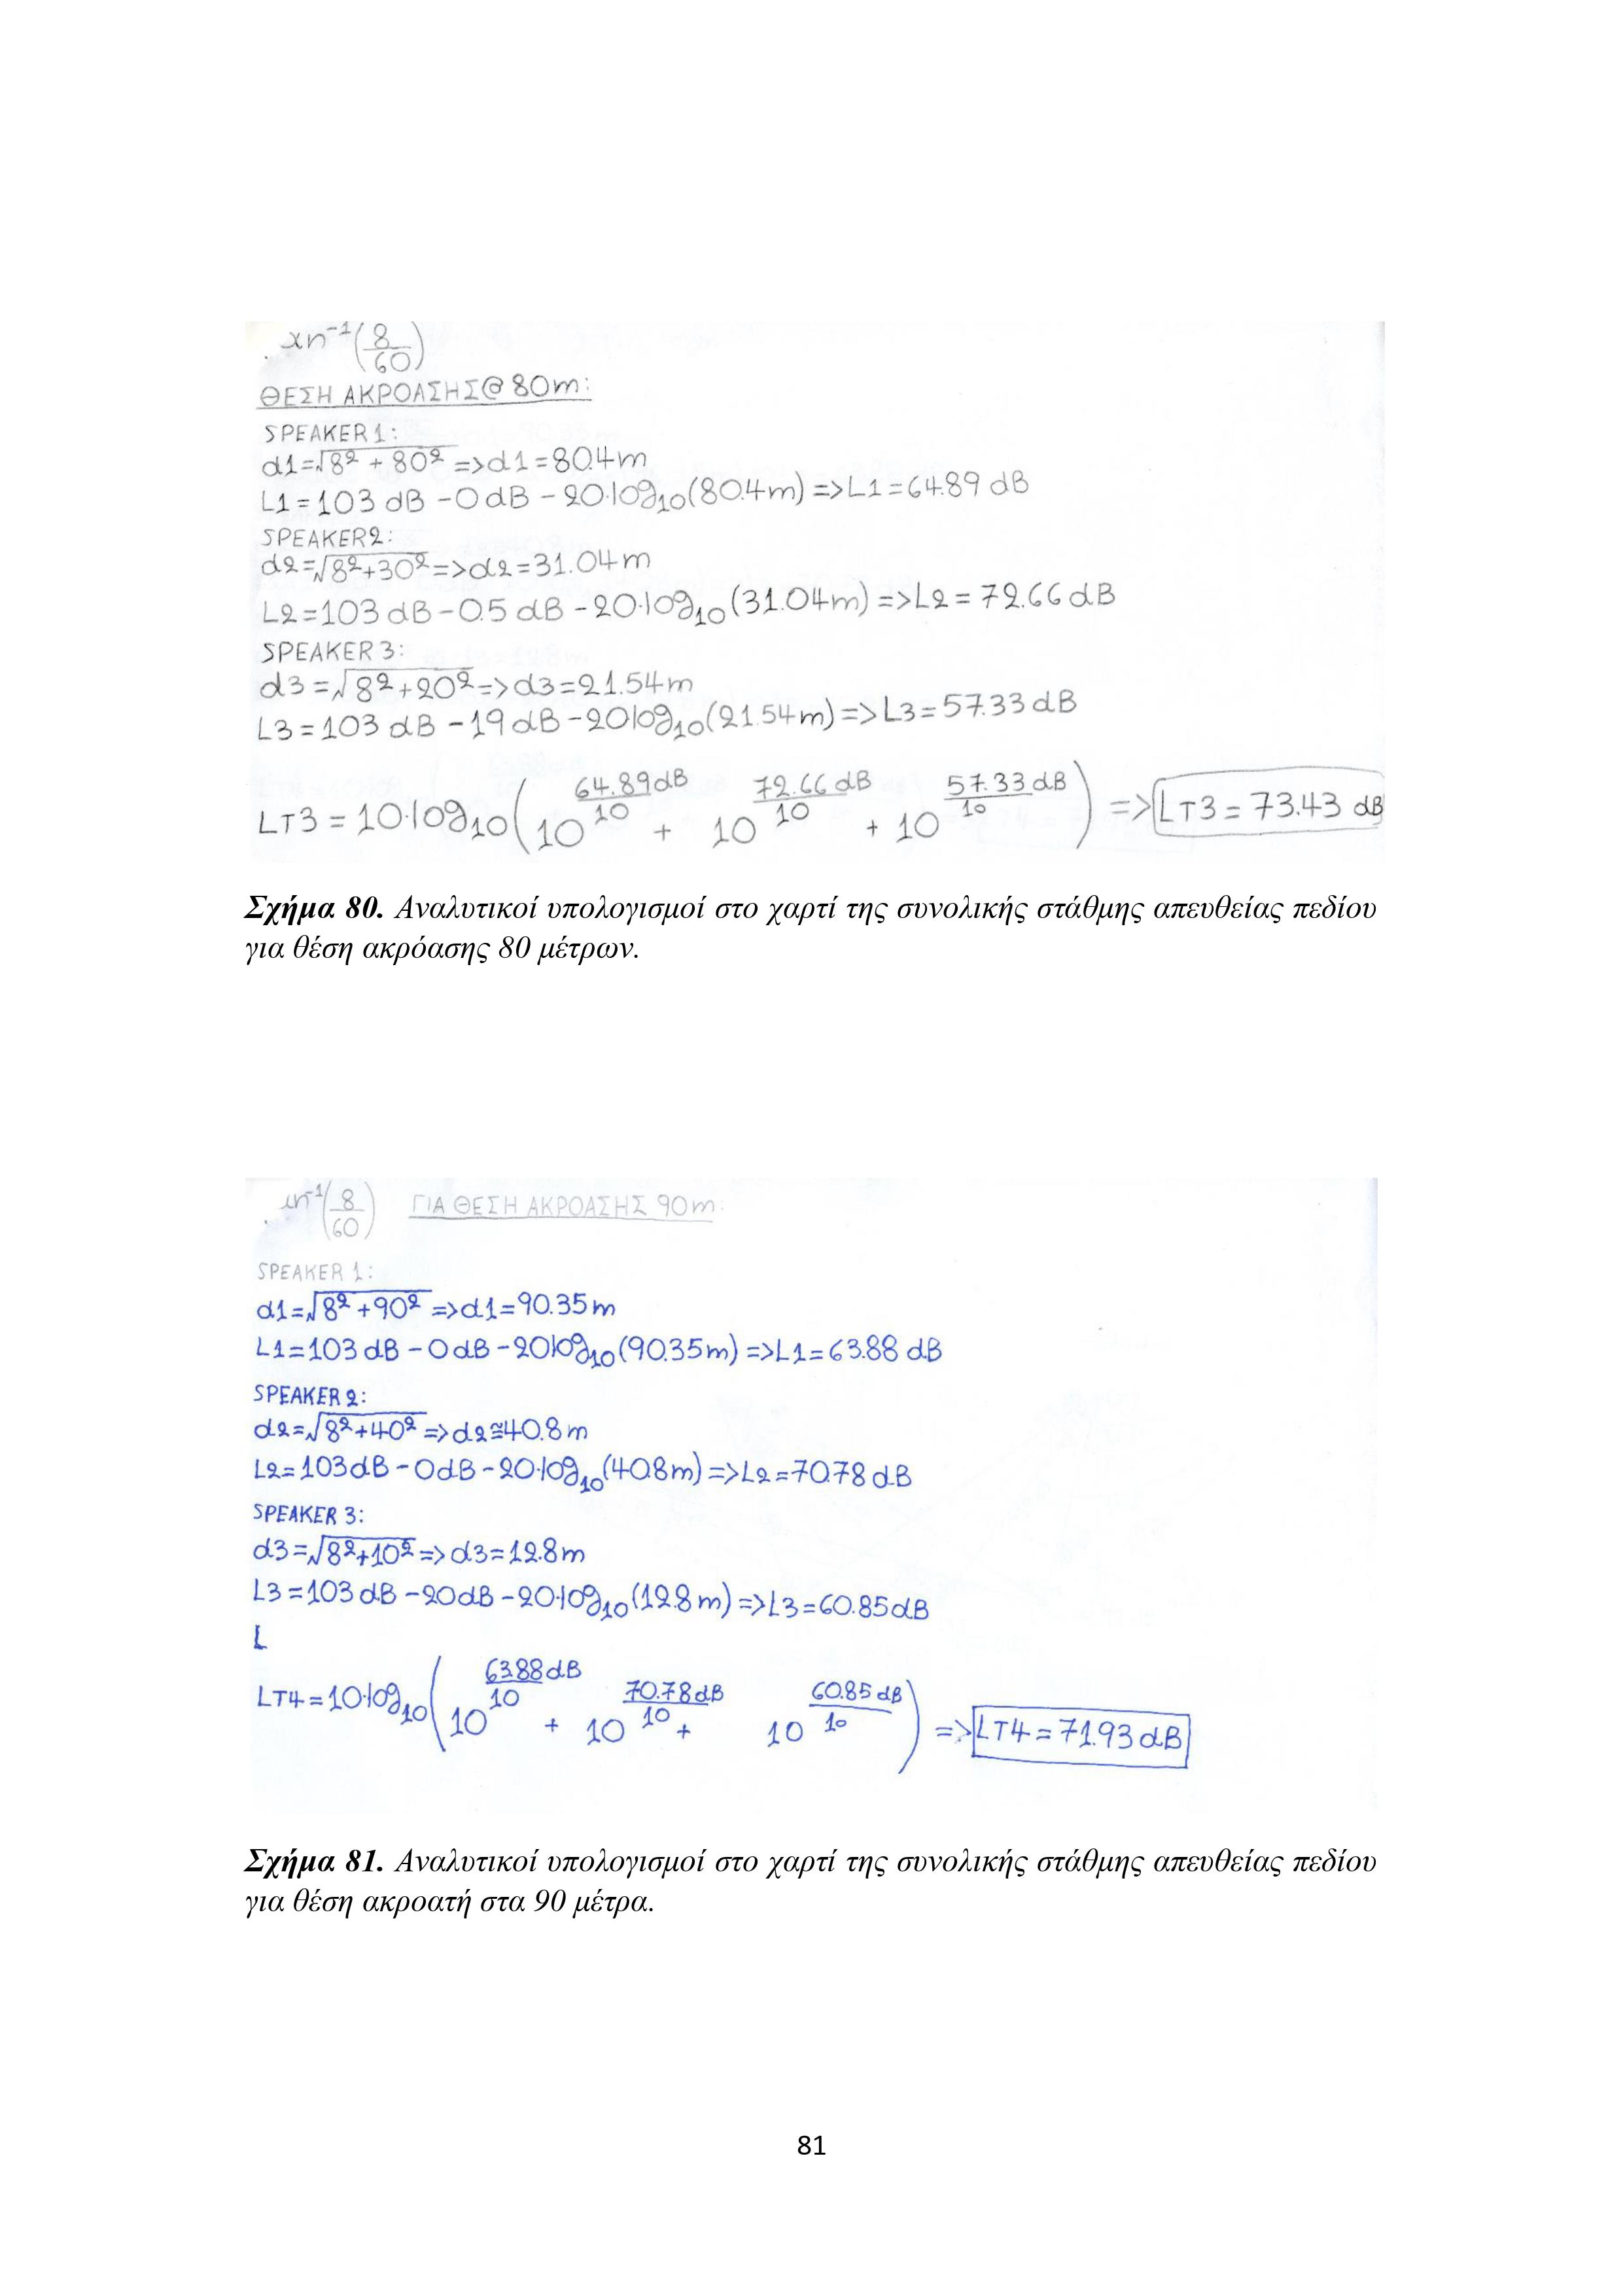 xn⁻¹(8/60)
ΘΕΣΗ ΑΚΡΟΑΣΗΣ@ 80m:
SPEAKER 1:
d1=√8²+80² =>d1=80.4m
L1=103 dB -0dB - 20·log₁₀(80.4m) =>L1=64.89 dB
SPEAKER2:
d2=√8²+30² =>d2=31.04m
L2=103 dB -0.5 dB -20·log₁₀(31.04m) =>L2=72.66 dB
SPEAKER 3:
d3=√8²+20² =>d3=21.54m
L3=103 dB -19dB -20log₁₀(21.54m) =>L3=57.33 dB
LT3 = 10·log₁₀(10^(64.89dB/10) + 10^(72.66dB/10) + 10^(57.33dB/10)) =>LT3=73.43 dB
Σχήμα 80. Αναλυτικοί υπολογισμοί στο χαρτί της συνολικής στάθμης απευθείας πεδίου
για θέση ακρόασης 80 μέτρων.
xn⁻¹(8/60) ΓΙΑ ΘΕΣΗ ΑΚΡΟΑΣΗΣ 90m:
SPEAKER 1:
d1=√8²+90² =>d1=90.35m
L1=103dB-0dB-20log₁₀(90.35m) =>L1=63.88 dB
SPEAKER 2:
d2=√8²+40² =>d2≅40.8m
L2=103dB-0dB-20·log₁₀(40.8m) =>L2=70.78dB
SPEAKER 3:
d3=√8²+10² =>d3=12.8m
L3=103dB-20dB-20·log₁₀(12.8m) =>L3=60.85dB
L
LT4=10·log₁₀(10^(63.88dB/10) + 10^(70.78dB/10) + 10^(60.85dB/10)) =>LT4=71.93dB
Σχήμα 81. Αναλυτικοί υπολογισμοί στο χαρτί της συνολικής στάθμης απευθείας πεδίου
για θέση ακροατή στα 90 μέτρα.
81